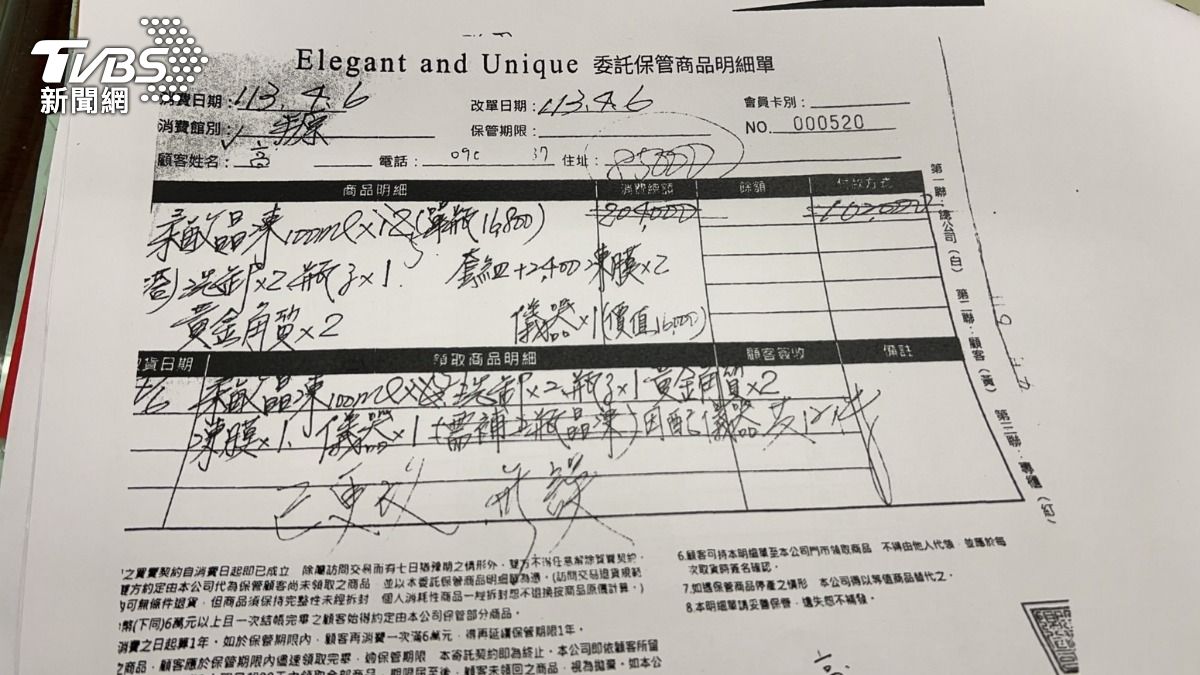 TVBS
新聞網
Elegant and Unique 委託保管商品明細單
消費日期：113.4.6 改單日期：113.4.6 會員卡別：
消費館別： 保管期限： NO. 000520
顧客姓名：高 電話：09 37 住址：85000
商品明細 消費總額 餘額 付款方式
晶凍100ml×12(單瓶16,800) 204,000 102,000
×2 瓶子×1 套組+2,400 凍膜×2
黃金角質×2 儀器×1(價值16,000)
取貨日期 領取商品明細 顧客簽收 備註
4/6 晶凍100ml ×2 瓶子×1 黃金角質×2
凍膜×1、儀器×1 瓶晶凍)因配儀器
第一聯：總公司（白） 第二聯：顧客（黃） 第三聯：專櫃（紅）
之買賣契約自消費日起即已成立 除屬訪問交易而有七日猶豫助之情形外，雙方不得任意解除買賣契約。
雙方約定由本公司代為保管顧客尚未領取之商品 並以本委託保管商品明細單為憑。(訪問交易退貨規範
可無條件退貨，但商品須保持完整性未經拆封 個人消耗性商品一經拆封恕不退換按商品原價計算。)
幣(下同)6萬元以上且一次結帳完畢之顧客始得約定由本公司保管部分商品。
消費之日起算1年。如於保管期限內，顧客再消費一次滿6萬元，得再延續保管期限1年。
之商品，顧客應於保管期限內儘速領取完畢，如保管期限 本寄託契約即為終止。本公司即依顧客所留
期限屆至後，顧客未領回之商品，視為拋棄。如本公
6.顧客可持本明細單至本公司門市領取商品 不得由他人代領，並應於每
次取貨時簽名確認。
7.如遇保管商品停產之情形 本公司得以等值商品替代之。
8.本明細單請妥善保管，遺失恕不補發。